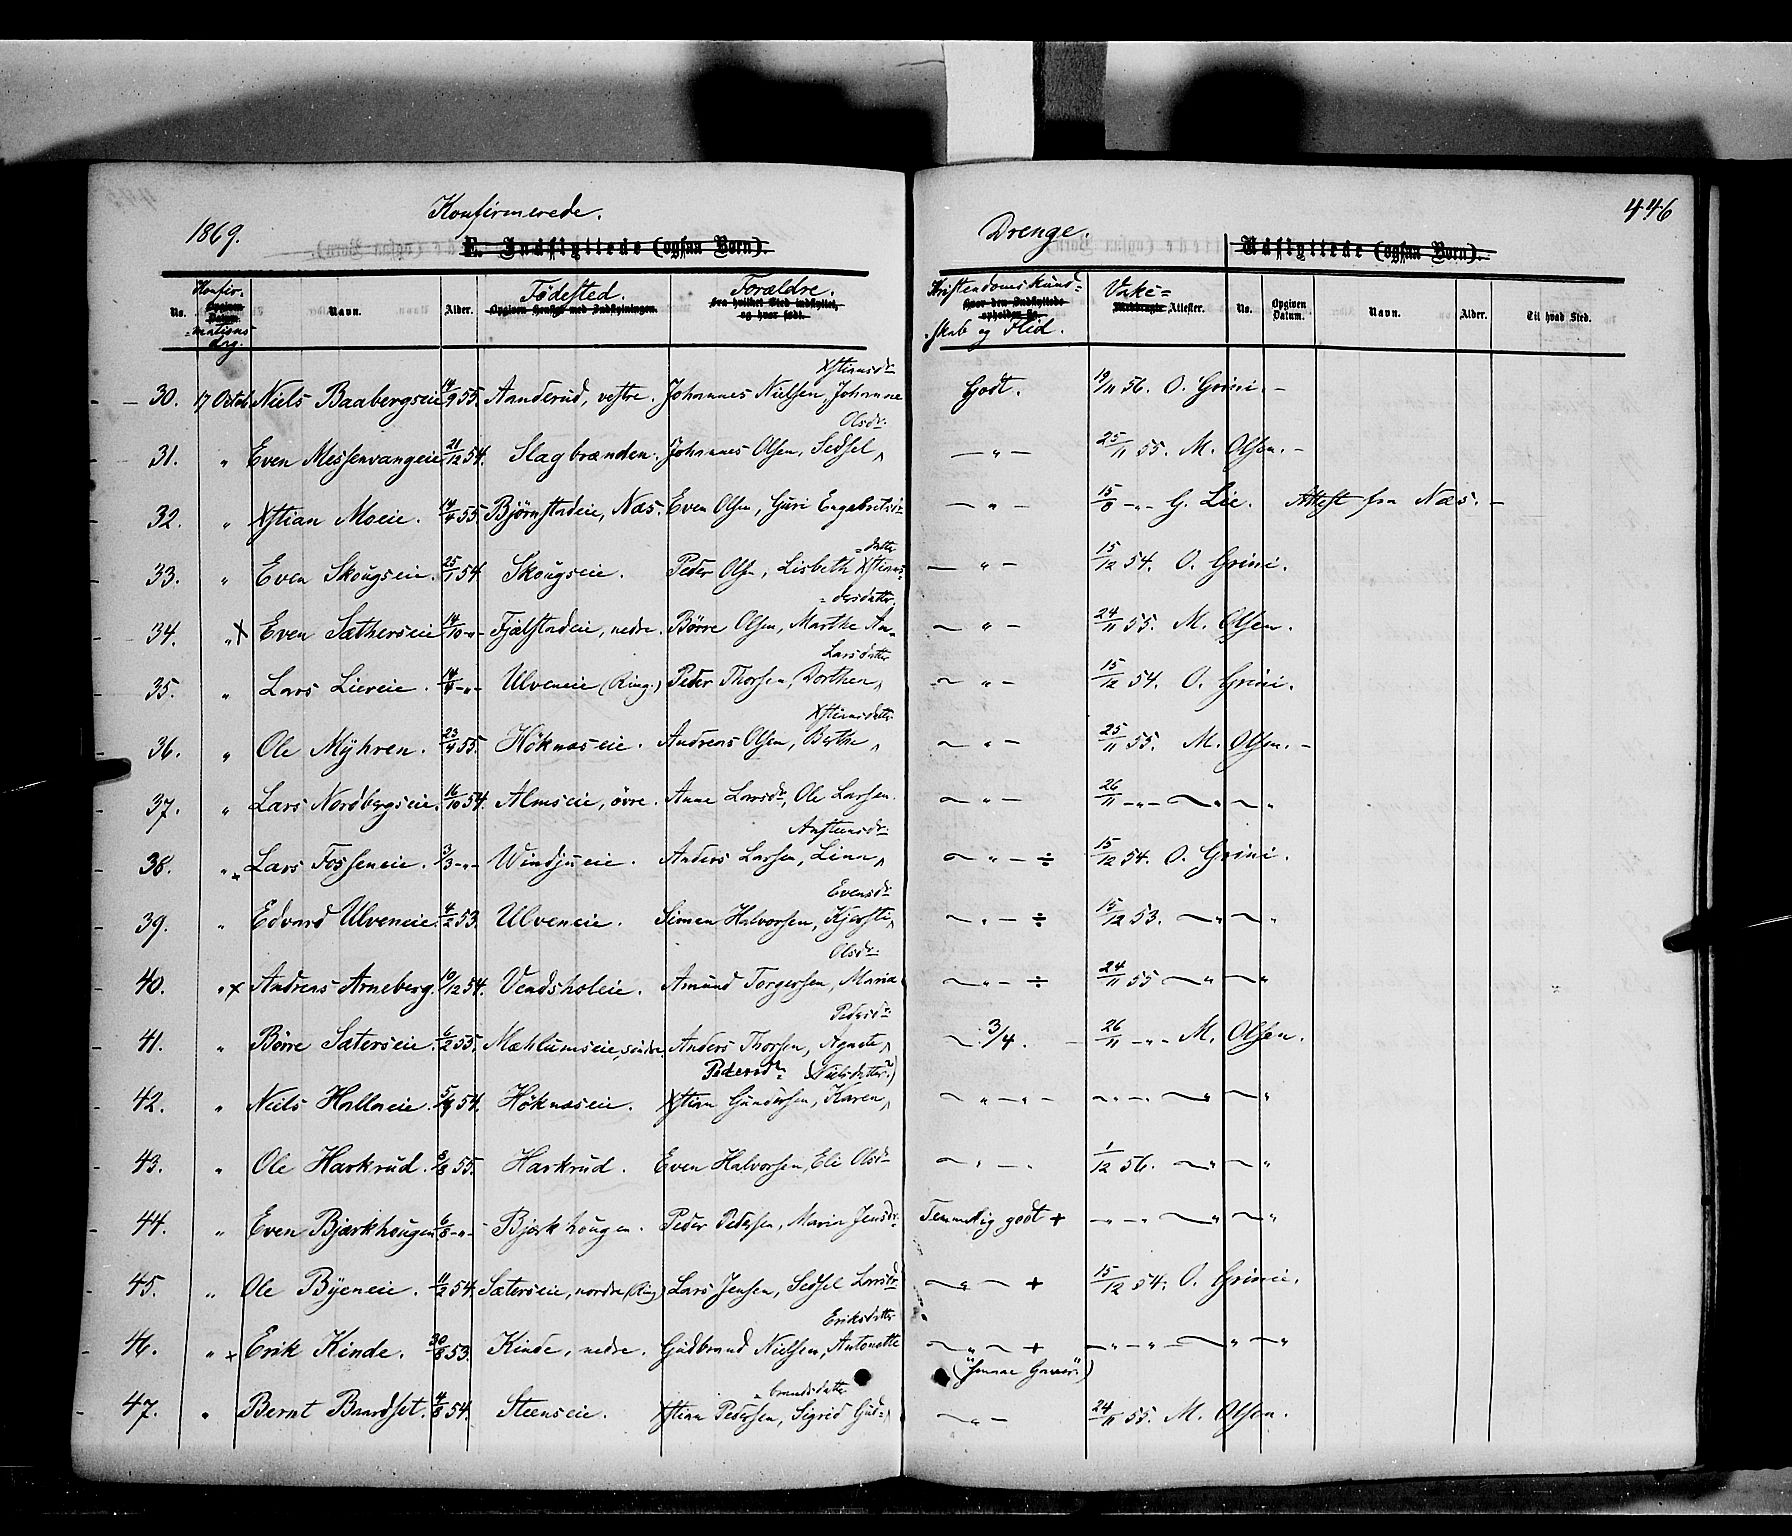 446
1869. Konfirmerede. Drenge.
E. Indflyttede (ogsaa Børn). Udflyttede (ogsaa Børn).
No. Konfir= mations dag. Navn. Alder. Fødested. Forældre. Kristendomskund= skab og Flid. Vake= Attester. No. Opgiven Datum. Navn. Alder. Til hvad Sted.
Opgiven Datum. Opgiven Hensigt med Indflytningen. fra hvilket Sted indflyttet, og hvor født. Hvor den Indflyttede opholder sig. Medbragte
30. 17 Octob. Niels Baabergseie 14/9 55. Aanderud, vestre. Johannes Nielsen, Johanne Xstiansdr. Godt. 19/11 56. O. Grini. -
31. " Even Messenvangeie 21/12 54. Slagbrænden. Johannes Olsen, Sedsel Olsdr. — " — 25/11 55. M. Olsen. -
32. " Xstian Moeie. 14/4 55. Bjørnstadeie, Næs. Even Olsen, Guri Engebretsdr — " — 15/8 - " - G. Lie. Attest fra Næs. -
33. " Even Skougseie. 25/1 54 Skougseie. Peder Olsen, Lisbeth Xstians= datter — " — 15/12 54. O. Grini.
34. " X Even Sætherseie 14/10 - " - Fjælstadeie, nedre. Børre Olsen, Marthe An= dersdatter. — " — 24/11 55. M. Olsen.
35. " Lars Liereie. 14/8 - " - Ulveneie (Ring.) Peder Thorsen, Dorthea Larsdatter — " — 15/12 54. O. Grini.
36. " Ole Myhren. 23/4 55. Høknæseie. Andreas Olsen, Berthe Xstiansdatter — " — 25/11 55. M. Olsen. -
37. " Lars Nordbergseie. 16/10 54. Almseie, øvre. Anne Larsdr, Ole Larsen. — " — 26/11 - " - " "
38. " x Lars Fosseneie. 3/3 - " - Windjueie. Anders Larsen, Lina Anstensdr. — " — ÷ 15/12 54. O. Grini.
39. " Edvard Ulveneie. 4/2 53. Ulveneie. Simen Halvorsen, Kjersti Evensdr — " — ÷ 15/12 53. " "
40. " x Andreas Arneberg. 10/12 54. Vendsholeie. Amund Torgersen, Maria Olsdr. — " — ÷ 24/11 55 " "
41. " Børre Sæterseie. 6/2 55. Mæhlumseie, søndre. Anders Thorsen, Agnete Pedersdr. — 3/4. 26/11 - " - M. Olsen.
42. " Niels Hallaeie. 5/9 54. Høknæseie. Xstian Gundersen, Karen Pedersdr. (Nielsdatter?) — " — " — - " - " "
43. " Ole Harkrud. 8/8 55. Harkrud. Even Halvorsen, Eli Olsdr — " — 1/12 56. " "
44. " Even Bjærkhougen 6/8 - " - Bjærkhougen. Peder Pedersen, Marie Jensdr. Temmelig godt + - " - " "
45. " Ole Byeneie. 11/2 54. Sæterseie, nordre (Ring) Lars Jensen, Sedsel Larsdr — " — + 15/12 54. O. Grini.
46. " x Erik Kinde. 30/8 53. Kinde, nedre. Gudbrand Nielsen, Antonette Eriksdatter — " — + - " - " "
47. " Bernt Baardset. 4/8 54. Steenseie. Xstian Pedersen, Sigrid Gud= brandsdatter ("smaae Gaver") — " — 24/11 55. M. Olsen.